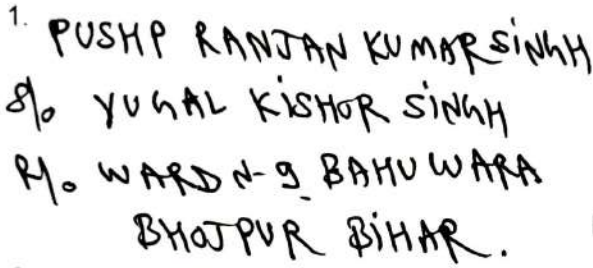 1. PUSHP RANJAN KUMAR SINGH
S/o YUGAL KISHOR SINGH
R/o WARD N-9 BAHUWARA
BHOJPUR BIHAR.